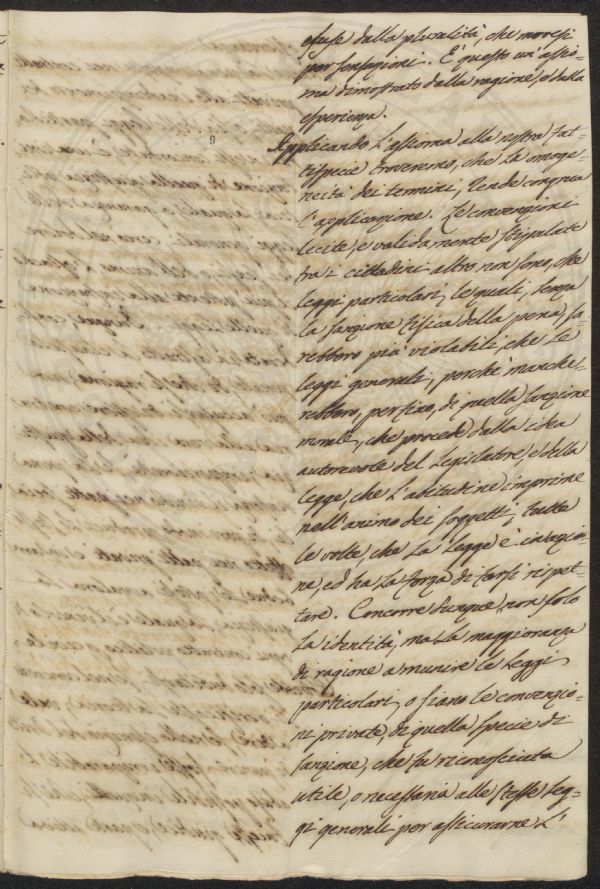 esuse dalla pluralità, che movesi
per sensazioni. È questo un' assio-
ma dimostrato dalla ragione, e dalla
esperienza.
Applicando L'assioma alla nostra fat-
tispecie troveremo, che La omoge-
neità dei termini, rende congrua
l'applicazione. Le convenzioni
lecite, e validamente stipulate
tra i cittadini altro non sono, che
leggi particolari, le quali, senza
la sanzione fisica della pena, sa-
rebbero più violabili, che Le
leggi generali, perchè manche-
rebbero, perfino, di quella sanzione
morale, che procede dalla idea
autorevole del Legislatore, e della
legge, che L'abitudine imprime
nell'animo dei soggetti, tutte
le volte, che La Legge è in azio-
ne, ed ha La forza di farsi rispet-
tare. Concorre dunque non solo
La identità, ma La maggioranza
di ragione a munire le Leggi
particolari, o siano le convenzio-
ni private, di quella specie di
sanzione, che fu riconosciuta
utile, o necessaria alle stesse Leg-
gi generali per assicurarne L'